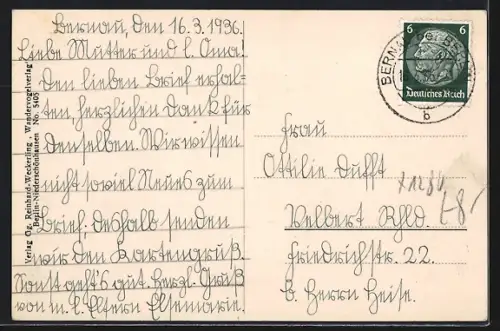 Bernau, den 16.3.1936.
Liebe Mutter und l. Oma!
Den lieben Brief erhal-
ten, herzlichen Dank für
denselben. Wir wissen
nicht soviel Neues zum
Brief, deshalb senden
wir den Kartengruß.
Sonst geht's gut. Herzl. Gruß
von m. l. Eltern Elsemarie.
Verlag Og. Reinhard-Wederling, Wandervogelverlag
Berlin-Niederschönhausen No. 5405
6 6
Deutsches Reich
BERNAU
b
Frau
Ottilie Dufft
Velbert Rhld.
Friedrichstr. 22.
b. Herrn Heise.